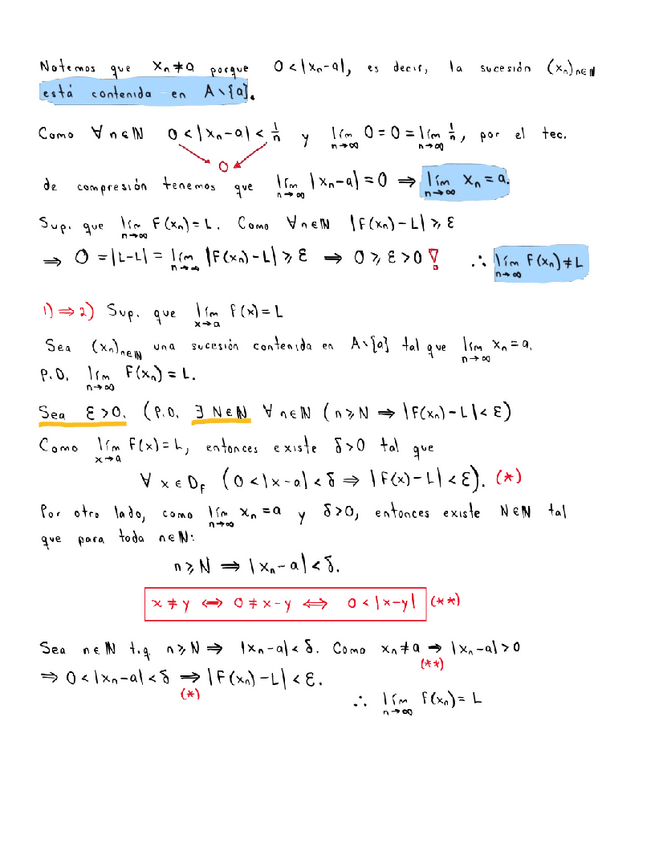 Notemos que xₙ≠a porque 0<|xₙ-a|, es decir, la sucesión (xₙ)ₙ∈ℕ
está contenida en A∖{a}.
Como ∀n∈ℕ 0<|xₙ-a|<1/n y lím_{n→∞} 0=0=lím_{n→∞} 1/n, por el teo.
0
de compresión tenemos que lím_{n→∞} |xₙ-a|=0 ⇒ lím_{n→∞} xₙ=a.
Sup. que lím_{n→∞} f(xₙ)=L. Como ∀n∈ℕ |f(xₙ)-L|≥ε
⇒ 0=|L-L|=lím_{n→∞} |f(xₙ)-L|≥ε ⇒ 0≥ε>0 ! ∴ lím_{n→∞} f(xₙ)≠L
1)⇒2) Sup. que lím_{x→a} f(x)=L
Sea (xₙ)ₙ∈ℕ una sucesión contenida en A∖{a} tal que lím_{n→∞} xₙ=a.
P.D. lím_{n→∞} f(xₙ)=L.
Sea ε>0. (P.D. ∃N∈ℕ ∀n∈ℕ (n≥N ⇒ |f(xₙ)-L|<ε)
Como lím_{x→a} f(x)=L, entonces existe δ>0 tal que
∀x∈D_f (0<|x-a|<δ ⇒ |f(x)-L|<ε). (*)
Por otro lado, como lím_{n→∞} xₙ=a y δ>0, entonces existe N∈ℕ tal
que para toda n∈ℕ:
n≥N ⇒ |xₙ-a|<δ.
x≠y ⇔ 0≠x-y ⇔ 0<|x-y| (**)
Sea n∈ℕ t.q n≥N ⇒ |xₙ-a|<δ. Como xₙ≠a ⇒ |xₙ-a|>0
(**)
⇒ 0<|xₙ-a|<δ ⇒ |f(xₙ)-L|<ε.
(*)
∴ lím_{n→∞} f(xₙ)=L